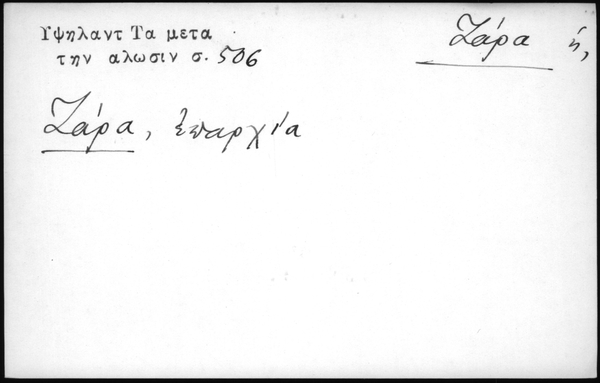 Υψηλαντ Τα μετα
την αλωσιν σ. 506
Ζάρα ἡ,
Ζάρα, ἐπαρχία